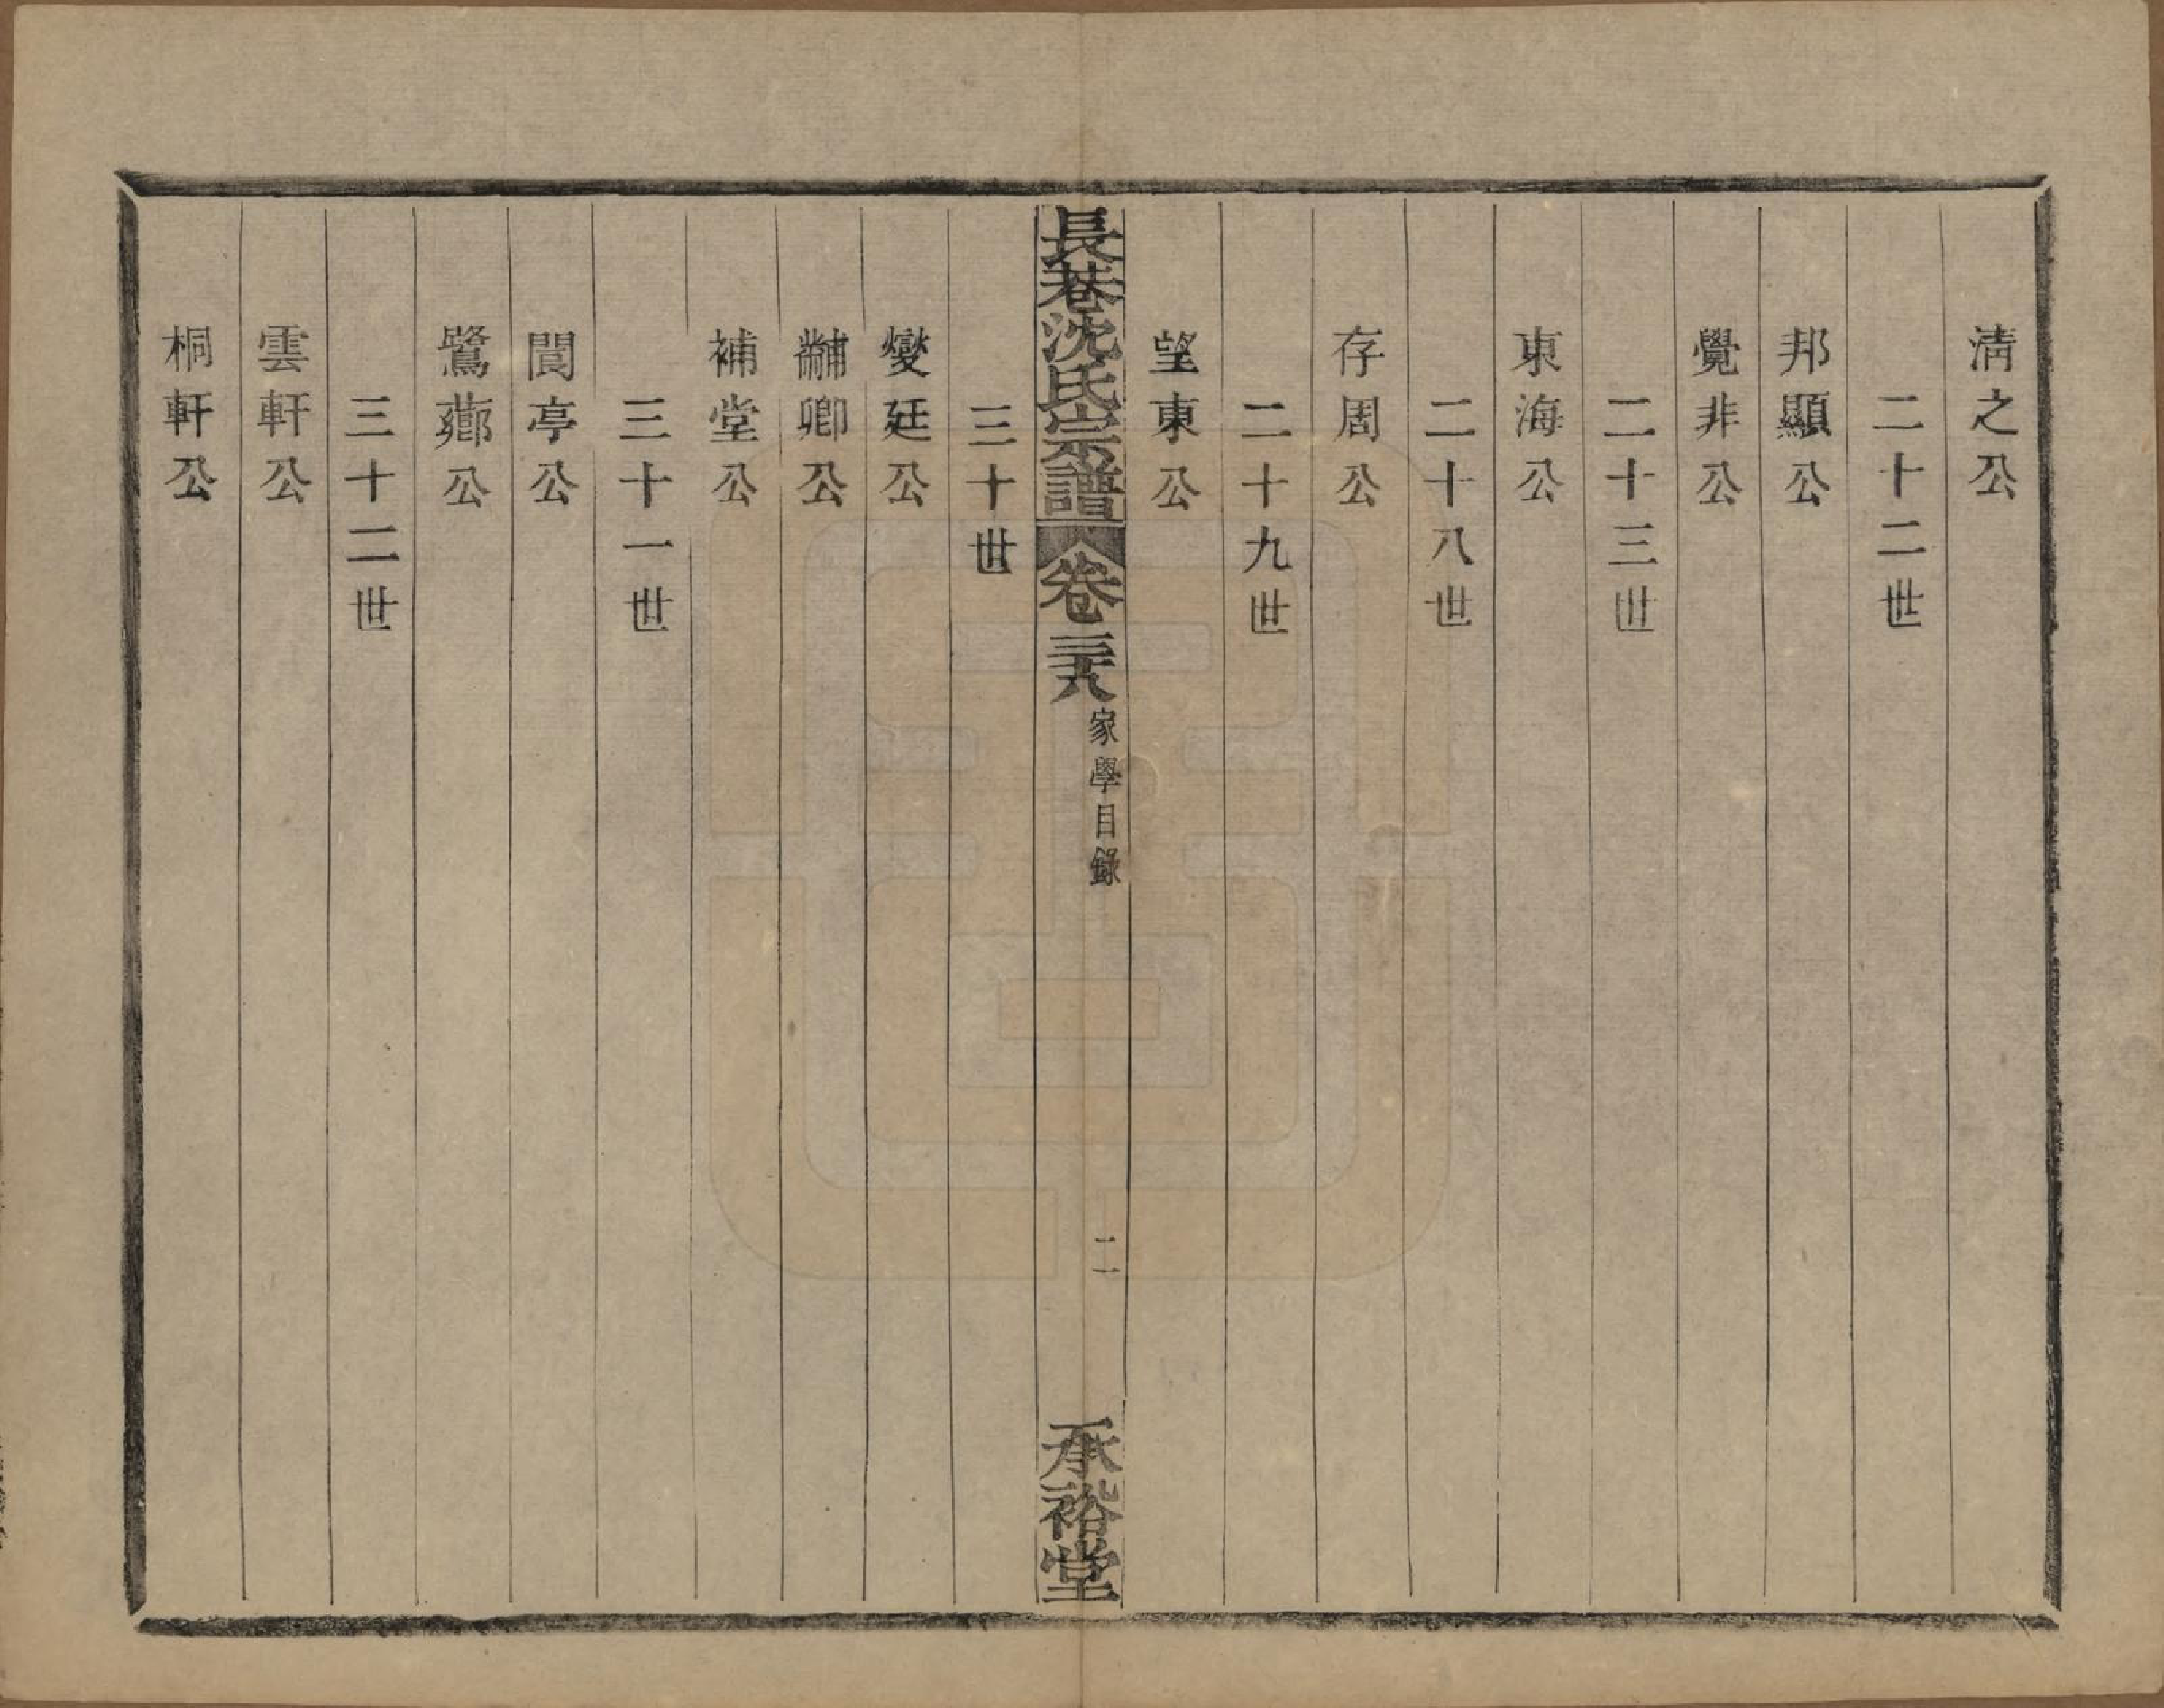 清之公
二十二世
邦顯公
覺非公
二十三世
東海公
二十八世
存周公
二十九世
望東公
長巷沈氏宗譜
卷三十八
家學目錄
二
承裕堂
三十世
燮廷公
黼卿公
補堂公
三十一世
閬亭公
鷺薌公
三十二世
雲軒公
桐軒公